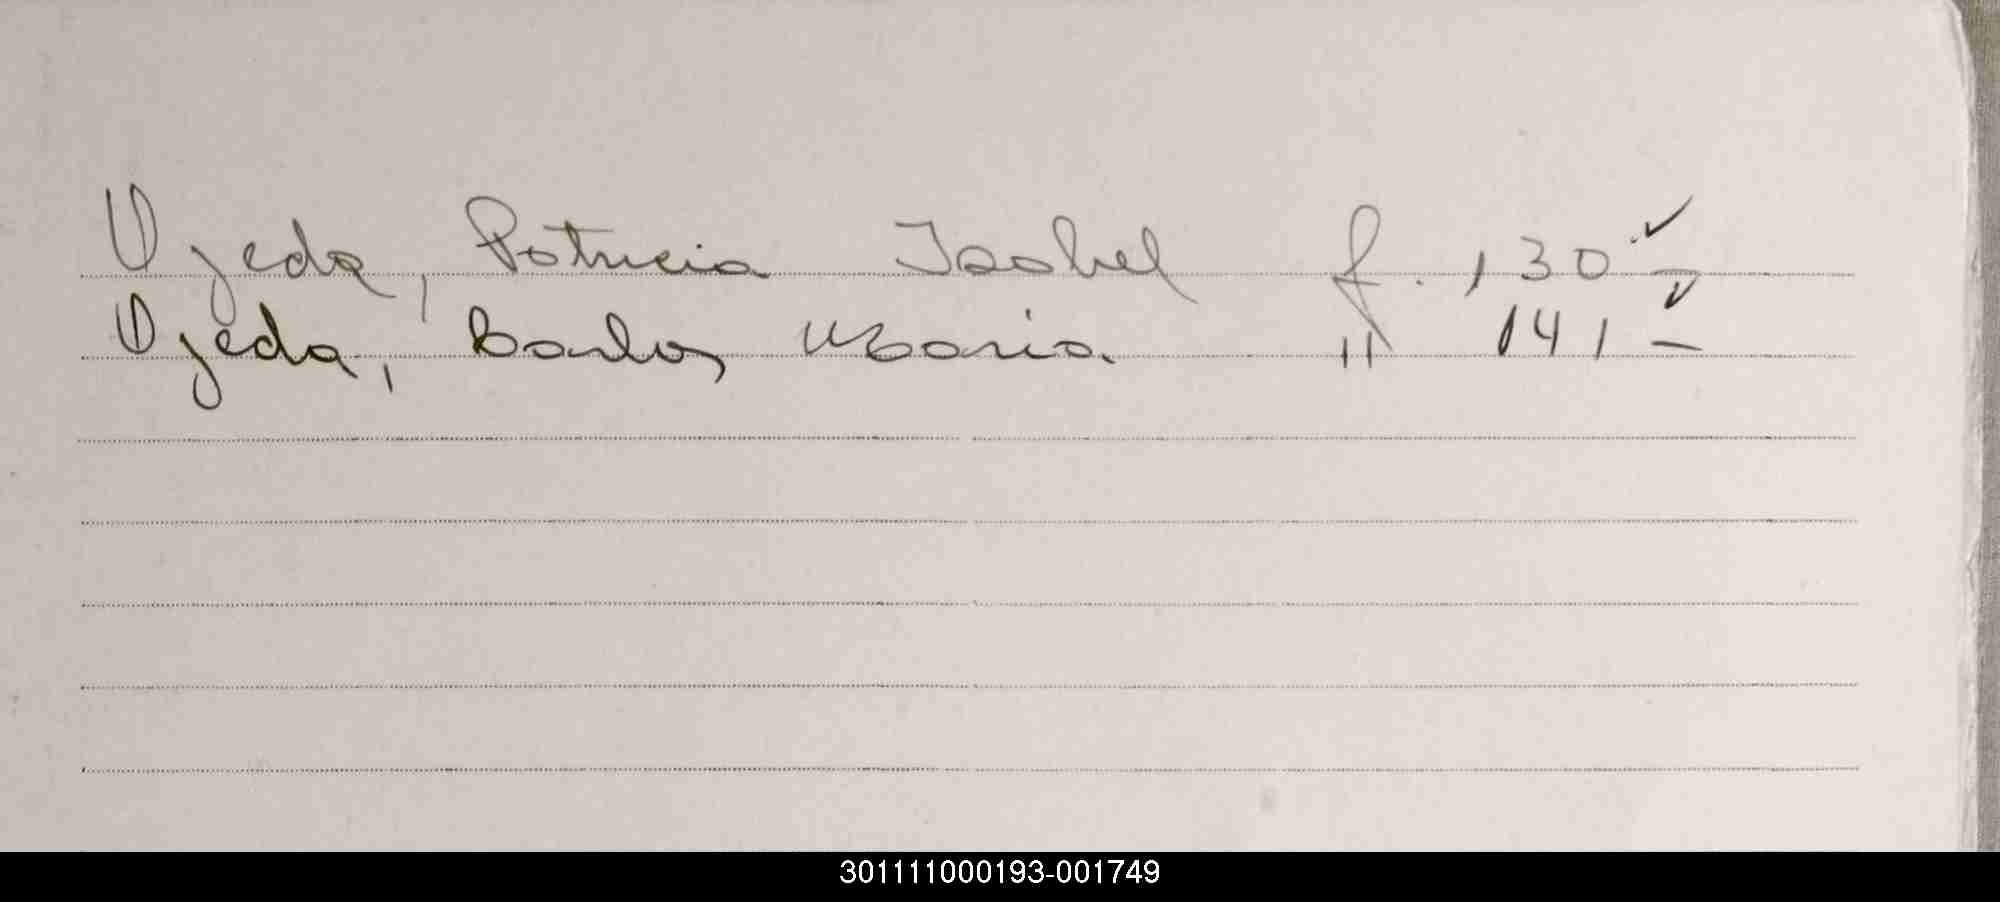 Ojeda, Patricia Isabel f. 130 ✓ -
Ojeda, Carlos Maria " 141 ✓ -
301111000193-001749